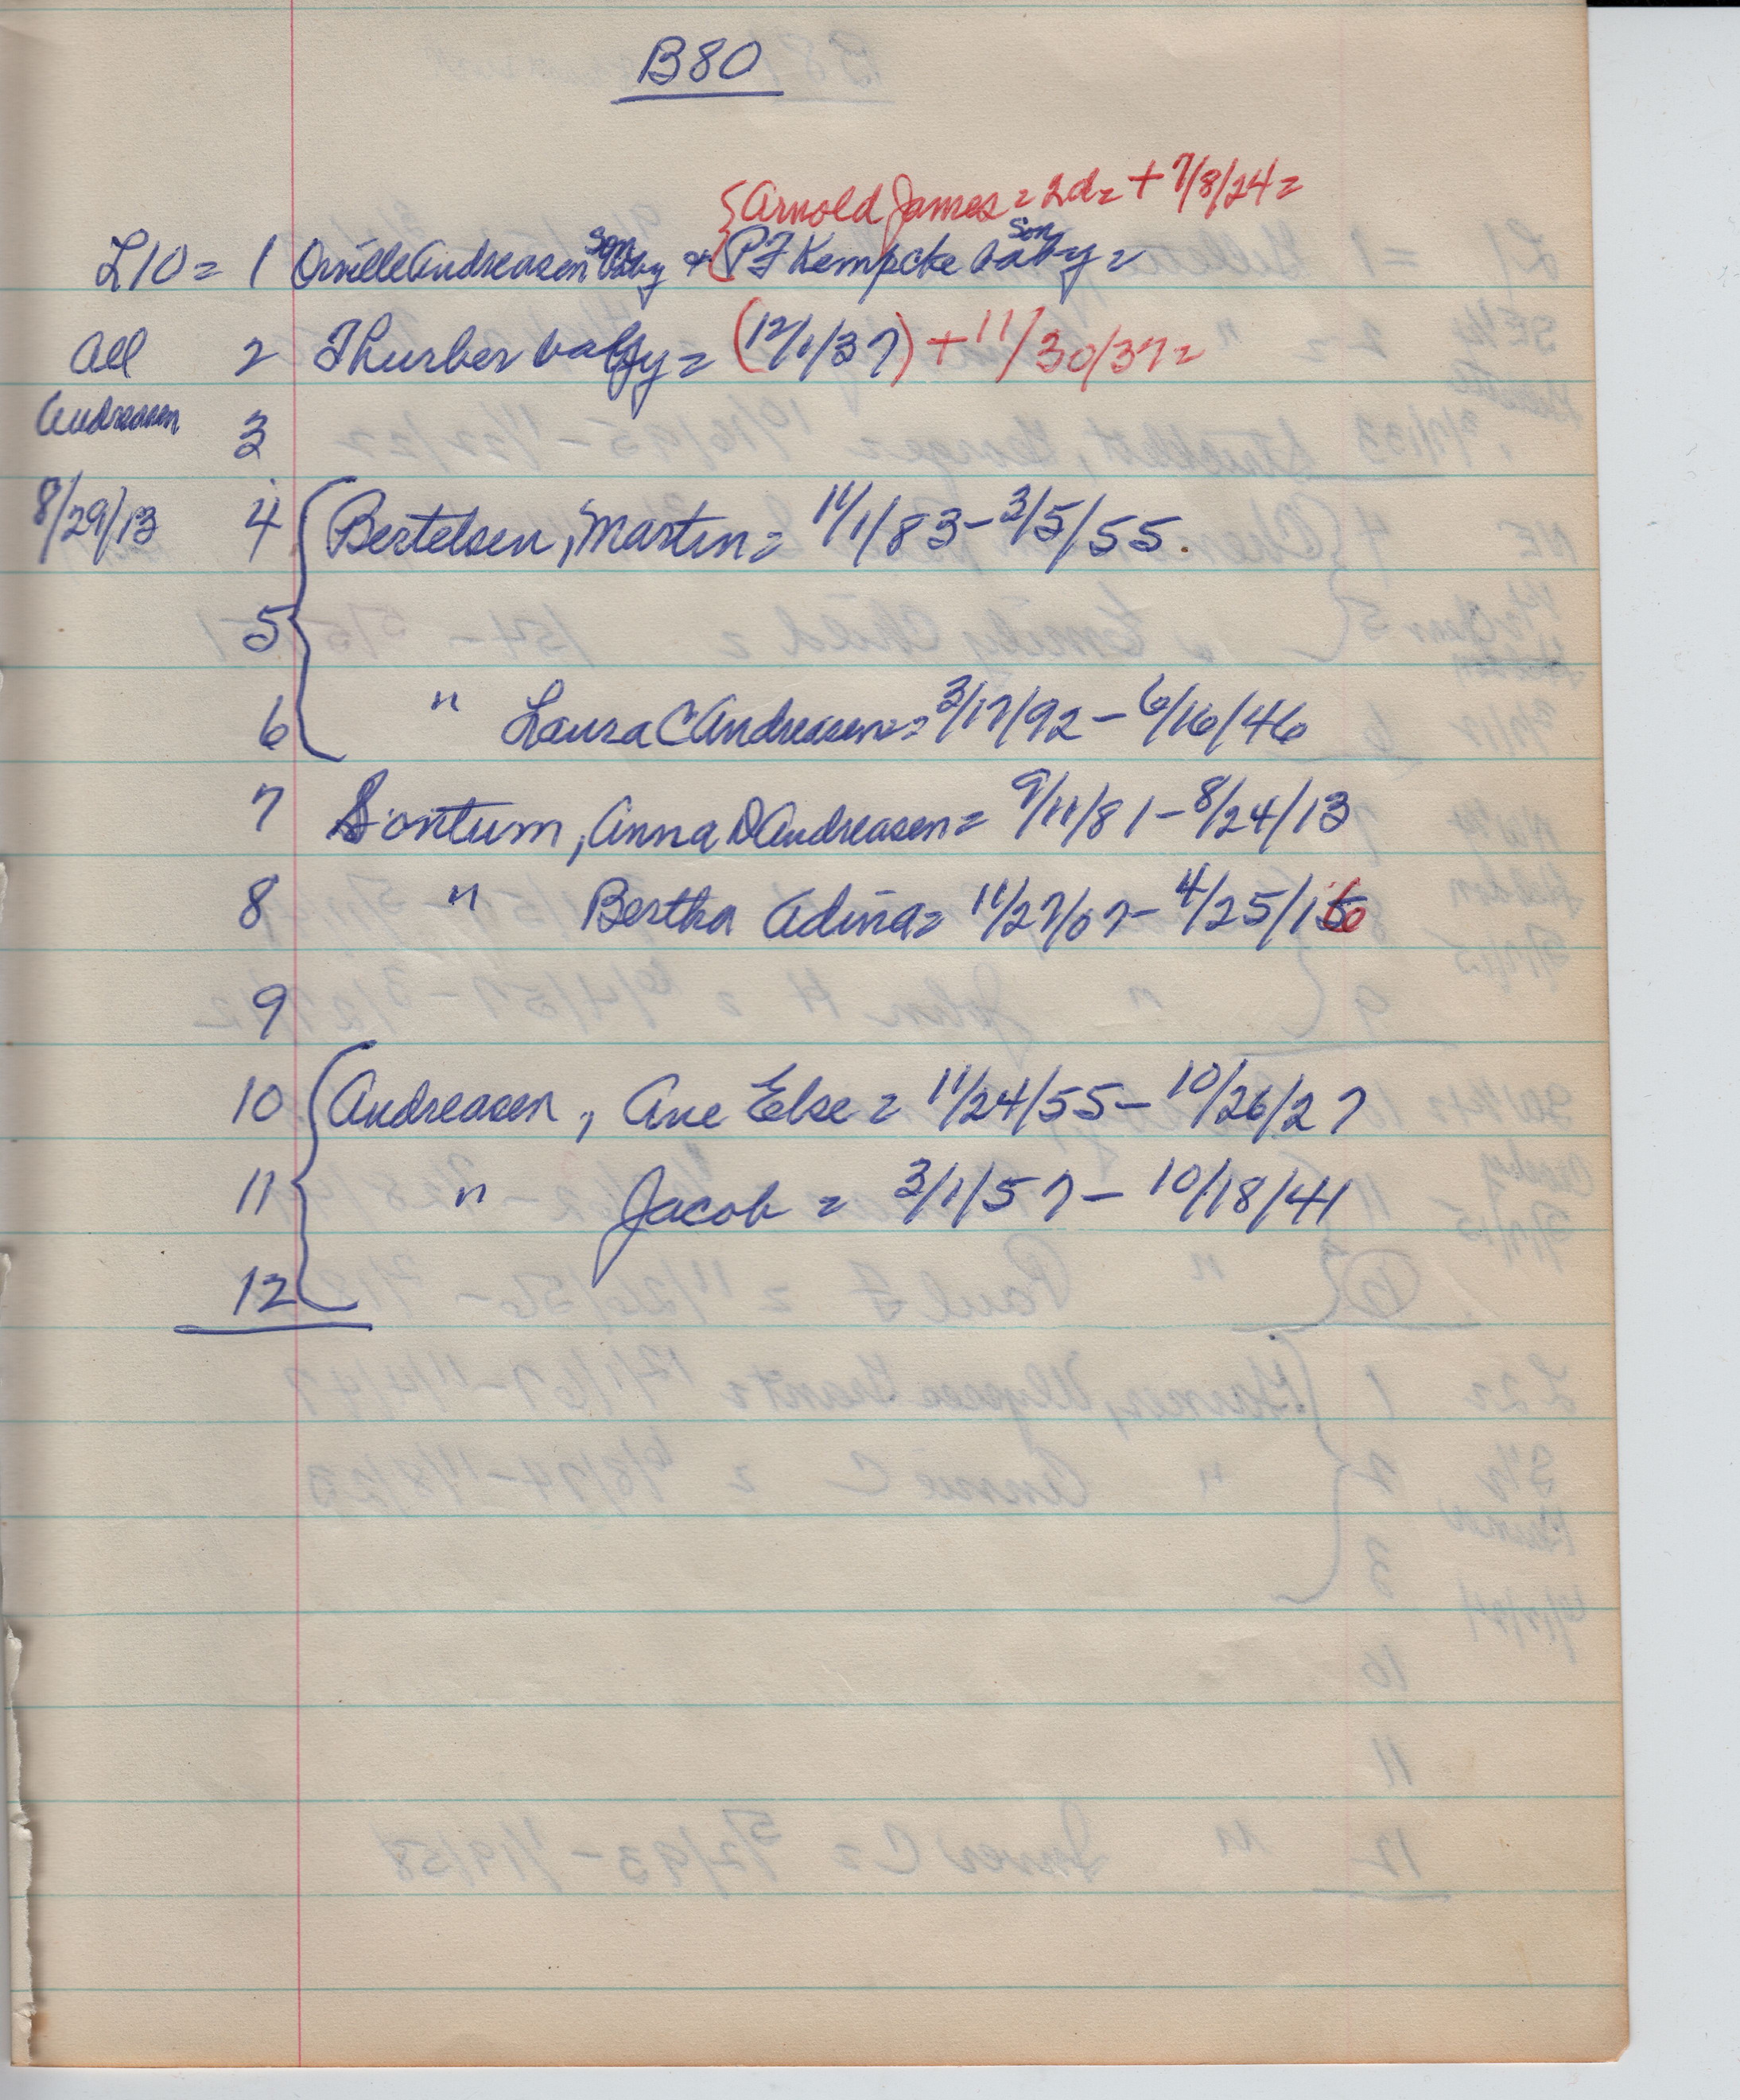 B80
{Arnold James = 2d = + 7/8/24 =
L10 = 1 Orville Andreasen son baby + P F Kempcke son baby =
All 2 Thurber baby = (12/1/37) + 11/30/37 =
Andreasen 3
8/29/13 4 Bertelsen, Martin = 11/1/83 - 3/5/55.
5
6 " Laura C Andreasen = 3/17/92 - 6/16/46
7 Sontum, Anna D Andreasen = 9/11/81 - 8/24/13
8 " Bertha Adina = 11/27/07 - 4/25/16
9
10 Andreasen, Ane Else = 11/24/55 - 10/26/27
11 " Jacob = 3/1/57 - 10/18/41
12